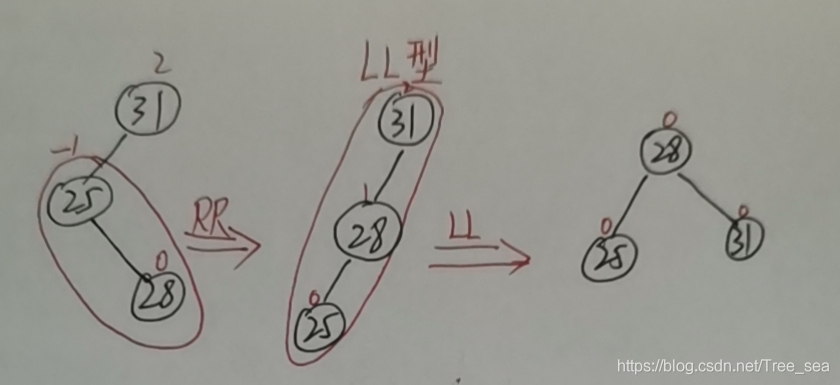 2
31
-1
25
0
28
RR
LL型
2
31
1
28
0
25
LL
0
28
0
25
0
31
https://blog.csdn.net/Tree_sea